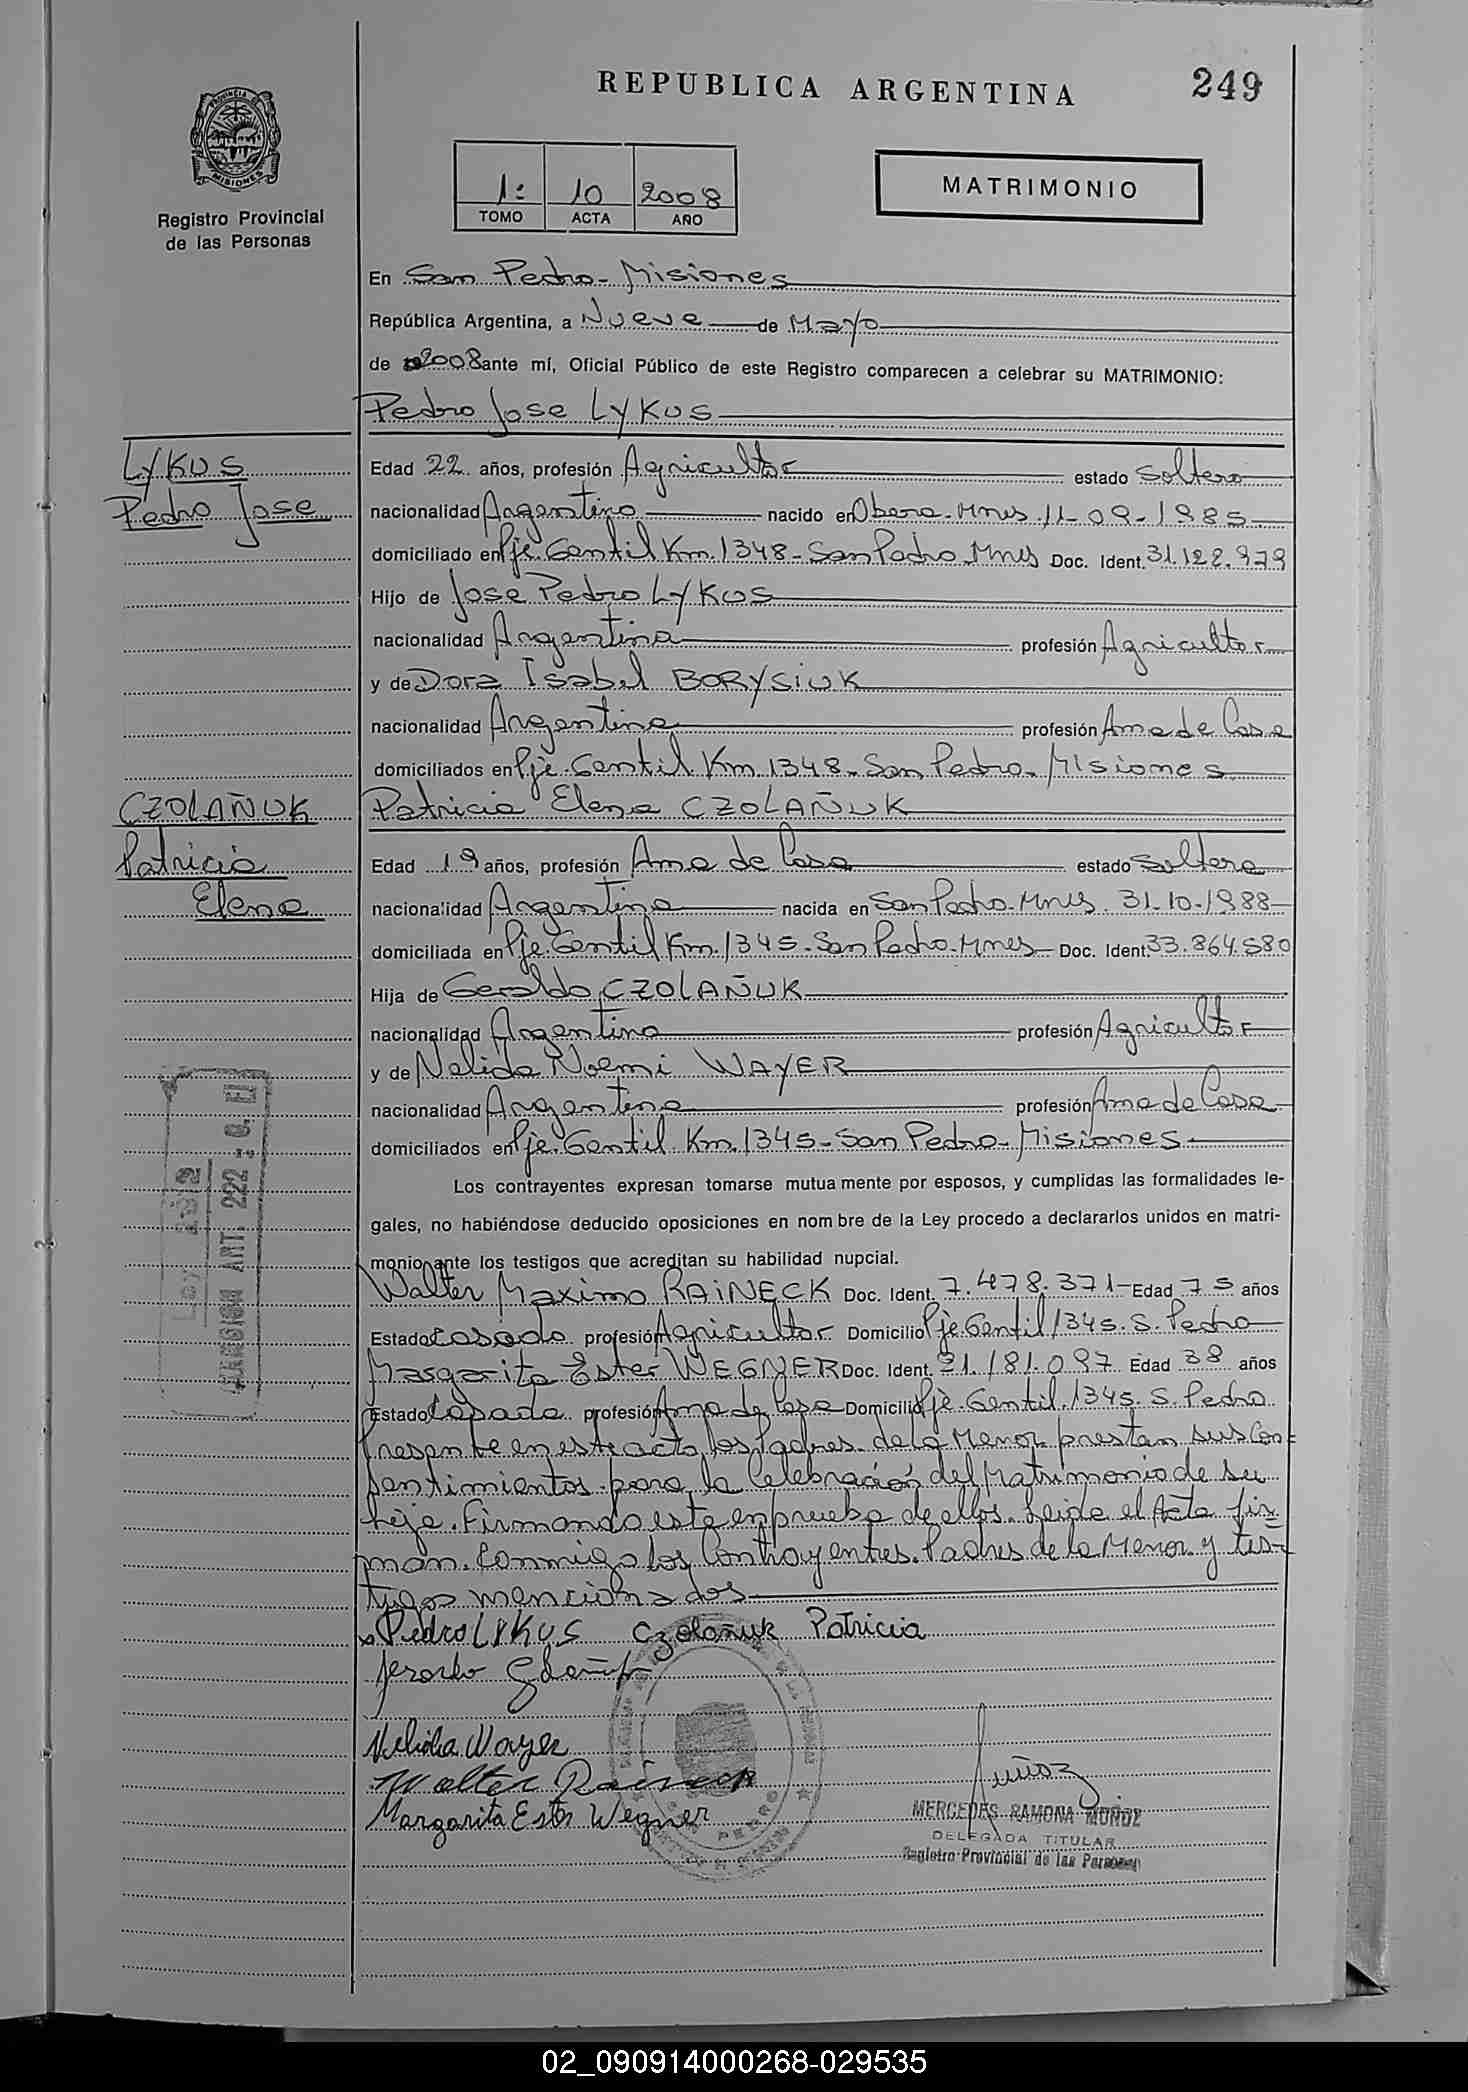 REPUBLICA ARGENTINA
249
PROVINCIA DE
MISIONES
Registro Provincial
de las Personas
1: 10 2008
TOMO ACTA AÑO
MATRIMONIO
En San Pedro - Misiones
República Argentina, a Nueve de Mayo
de 2008 ante mí, Oficial Público de este Registro comparecen a celebrar su MATRIMONIO:
Pedro Jose LYKUS
LYKUS
Pedro Jose
Edad 22 años, profesión Agricultor estado Soltero
nacionalidad Argentino nacido en Obera - Mnes 11-09-1985
domiciliado en Pje. Gentil Km. 1348 - San Pedro - Mnes Doc. Ident. 31.122.979
Hijo de Jose Pedro LYKUS
nacionalidad Argentina profesión Agricultor
y de Dora Isabel BORYSIUK
nacionalidad Argentina profesión Ama de Casa
domiciliados en Pje. Gentil Km 1348 - San Pedro - Misiones
CZOLAÑUK
Patricia
Elena
Patricia Elena CZOLAÑUK
Edad 19 años, profesión Ama de Casa estado Soltera
nacionalidad Argentina nacida en San Pedro - Mnes. 31-10-1988
domiciliada en Pje. Gentil Km. 1345 - San Pedro - Mnes Doc. Ident. 33.864.580
Hija de Geraldo CZOLAÑUK
nacionalidad Argentina profesión Agricultor
y de Nelida Noemi WAYER
nacionalidad Argentina profesión Ama de Casa
domiciliados en Pje. Gentil Km. 1345 - San Pedro - Misiones
Los contrayentes expresan tomarse mutua mente por esposos, y cumplidas las formalidades le-
gales, no habiéndose deducido oposiciones en nom bre de la Ley procedo a declararlos unidos en matri-
monio ante los testigos que acreditan su habilidad nupcial.
Walter Maximo RAINECK Doc. Ident. 7.478.371 Edad 75 años
Estado Casado profesión Agricultor Domicilio Pje. Gentil 1345. S. Pedro
Margarita Ester WEGNER Doc. Ident. 21.181.097 Edad 38 años
Estado Casada profesión Ama de Casa Domicilio Pje. Gentil. 1345. S. Pedro
Presente en este acto los Padres de la Menor prestan sus Con
sentimientos para la Celebración del Matrimonio de su
hija. Firmando este en prueba de ellos. Leida el Acta fir
man Conmigo los Contrayentes. Padres de la Menor y tes-
tigos mencionados
Pedro LYKUS Czolañuk Patricia
Nelida Wayer
Walter Raineck
Margarita Ester Wegner
Muñoz
MERCEDES RAMONA MUÑOZ
DELEGADA TITULAR
Registro Provincial de las Personas
SAN PEDRO
02_090914000268-029535